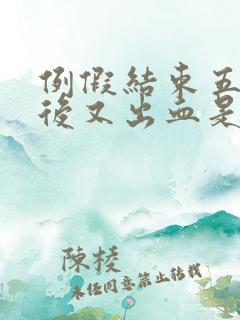 例假結束五
後又出血是
陳棱
未经同意禁止转载